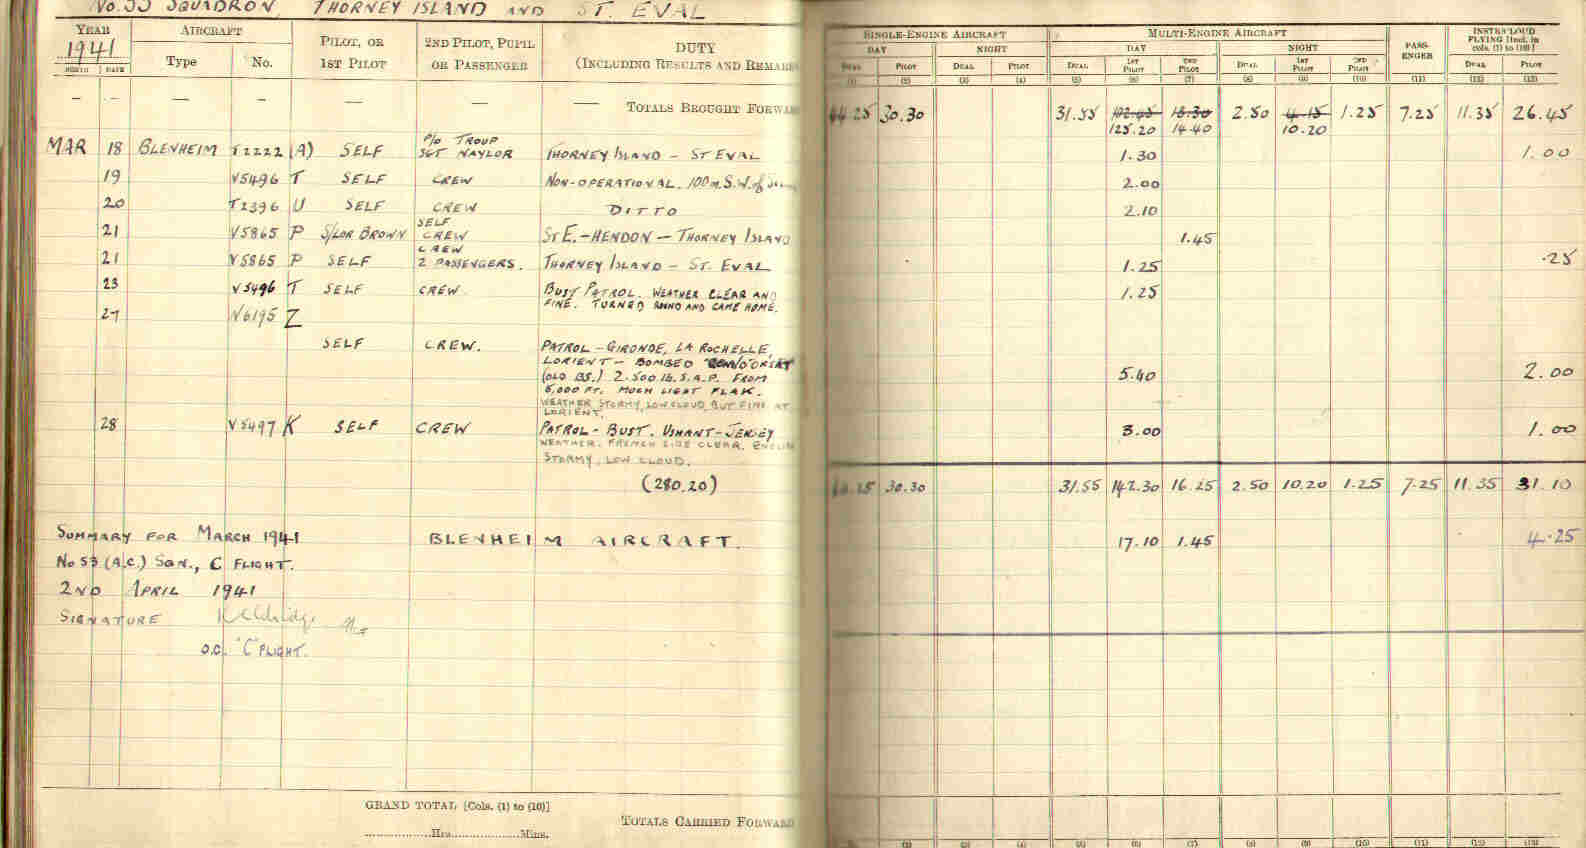 No. 53 SQUADRON, THORNEY ISLAND AND ST. EVAL
YEAR AIRCRAFT PILOT, OR 1ST PILOT 2ND PILOT, PUPIL OR PASSENGER DUTY (INCLUDING RESULTS AND REMARKS SINGLE-ENGINE AIRCRAFT MULTI-ENGINE AIRCRAFT PASS-ENGER INSTR/CLOUD FLYING [Incl. in cols. (1) to (10)]
1941 Type No. DAY NIGHT DAY NIGHT
MONTH DATE DUAL PILOT DUAL PILOT DUAL 1ST PILOT 2ND PILOT DUAL 1ST PILOT 2ND PILOT DUAL PILOT
(1) (2) (3) (4) (5) (6) (7) (8) (9) (10) (11) (12) (13)
— — — — — — — TOTALS BROUGHT FORWARD 44.25 30.30 31.55 102.45 18.30 2.50 4.15 1.25 7.25 11.35 26.45
125.20 14.40 10.20
MAR 18 BLENHEIM T2222 (A) SELF P/O TROUP SGT NAYLOR THORNEY ISLAND - ST EVAL 1.30 1.00
19 V5496 T SELF CREW NON-OPERATIONAL. 100 m. S.W. of 2.00
20 T2396 U SELF CREW DITTO 2.10
21 V5865 P S/LDR BROWN SELF CREW ST E. - HENDON - THORNEY ISLAND 1.45
21 V5865 P SELF CREW 2 PASSENGERS. THORNEY ISLAND - ST. EVAL 1.25 .25
23 V5496 T SELF CREW BUST PATROL. WEATHER CLEAR AND 1.25
FINE. TURNED ROUND AND CAME HOME.
27 V6195 Z
SELF CREW. PATROL - GIRONDE, LA ROCHELLE,
LORIENT - BOMBED
(OLD BS.) 2.500 lb. S.A.P. FROM 5.40 2.00
5,000 FT. MUCH LIGHT FLAK.
WEATHER STORMY, LOW CLOUD, BUT FINE AT
LORIENT.
28 V5497 K SELF CREW PATROL - BUST. USHANT - JERSEY 3.00 1.00
WEATHER. FRENCH SIDE CLEAR. ENGLISH
STORMY, LOW CLOUD.
(280.20) 30.30 31.55 142.30 16.25 2.50 10.20 1.25 7.25 11.35 31.10
SUMMARY FOR MARCH 1941 BLENHEIM AIRCRAFT. 17.10 1.45 4.25
No 53 (A.C.) SQN., C FLIGHT.
2ND APRIL 1941
SIGNATURE
O.C. "C" FLIGHT.
GRAND TOTAL [Cols. (1) to (10)]
Hrs. Mins. TOTALS CARRIED FORWARD
(2) (3) (4) (5) (6) (7) (8) (9) (10) (11) (12) (13)